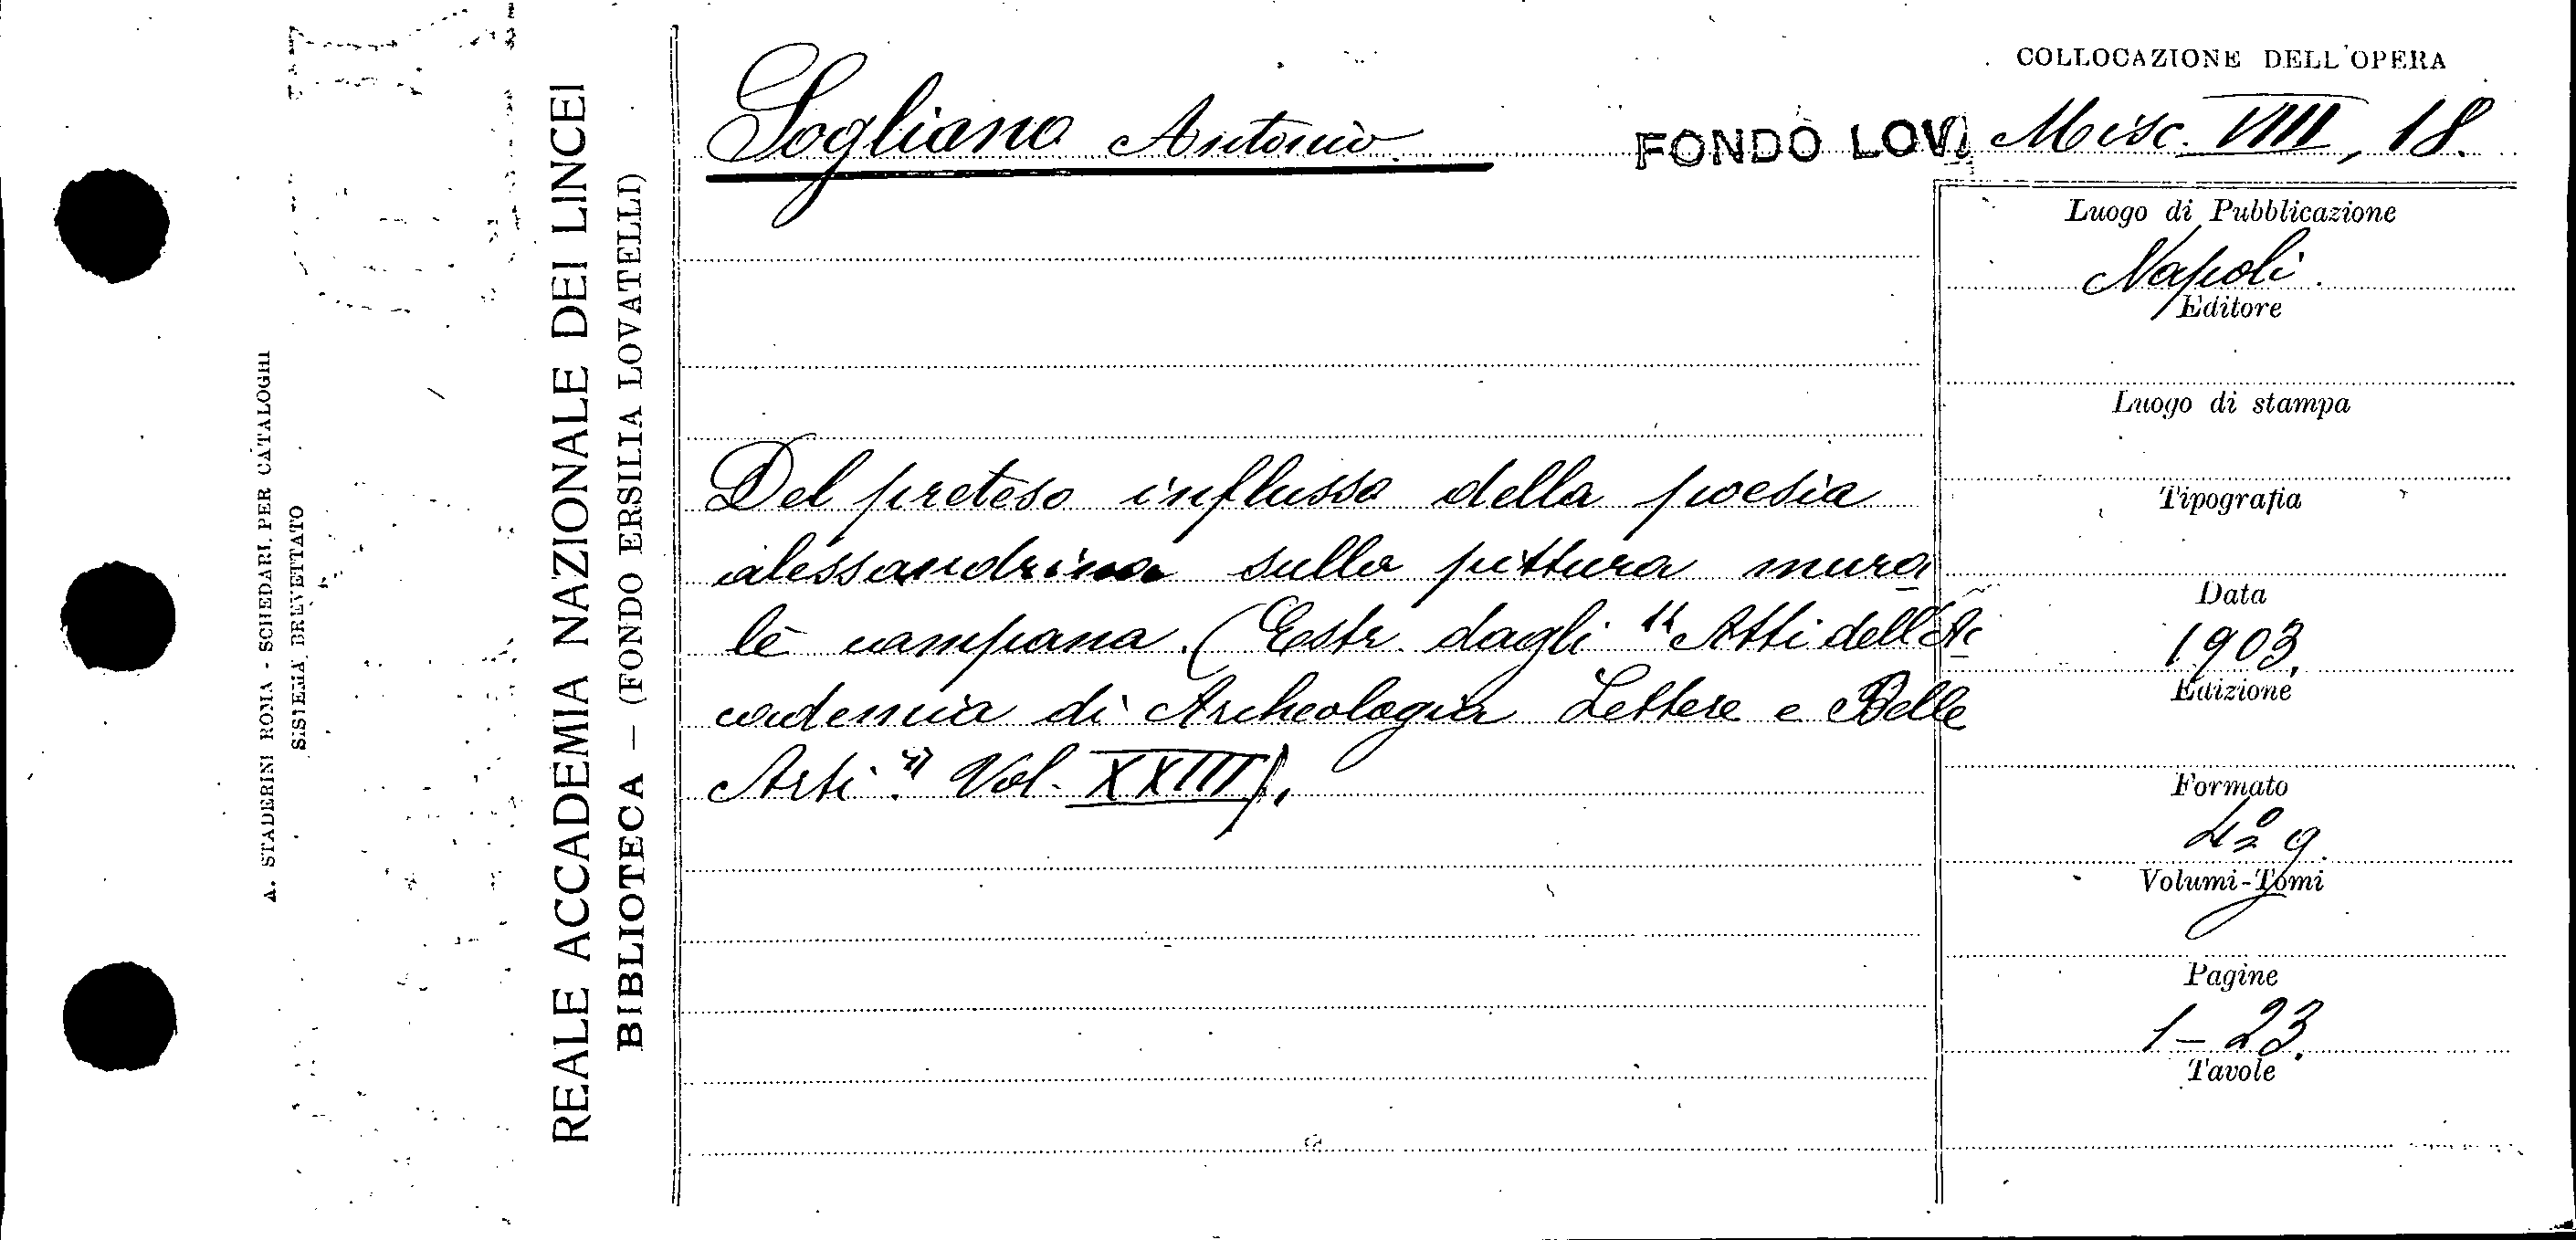 A. STADERINI ROMA - SCHEDARI PER CATALOGHI
SISTEMA BREVETTATO
REALE ACCADEMIA NAZIONALE DEI LINCEI
BIBLIOTECA — (FONDO ERSILIA LOVATELLI)
COLLOCAZIONE DELL'OPERA
Sogliano Antonio. FONDO LOV. Misc. VIII, 18.
Del preteso influsso della poesia
alessandrina sulla pittura mura
le campana. (Estr. dagli "Atti dell'Ac
cademia di Archeologia Lettere e Belle
Arti." Vol. XXIII).
Luogo di Pubblicazione
Napoli.
Editore
Luogo di stampa
Tipografia
Data
1903.
Edizione
Formato
4° g.
Volumi-Tomi
Pagine
1-23.
Tavole